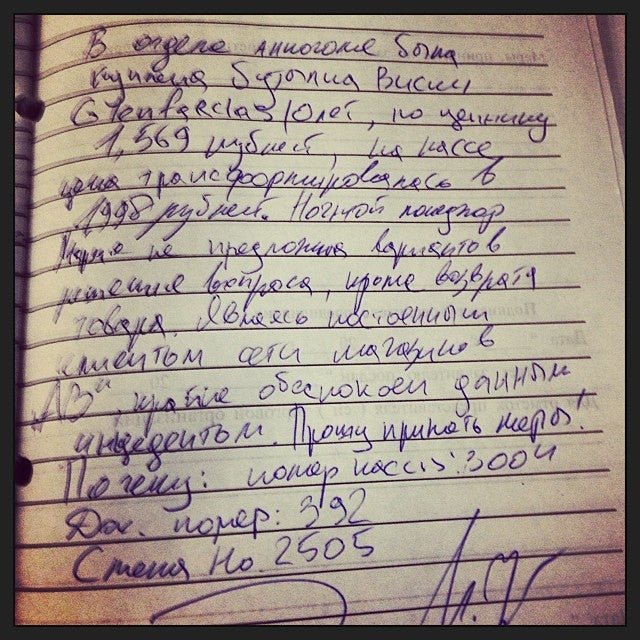 В отделе алкоголя была
куплена бутылка виски
Glenfarclas 10 лет, по ценнику
1,569 рублей, на кассе
цена трансформировалась в
1998 рублей. Ночной менеджер
не предложила вариантов
решения вопроса, кроме возврата
товара. Являясь постоянным
клиентом сети магазинов
„АВ“, крайне обеспокоен данным
инцедентом. Прошу принять меры!
По чеку: номер кассы: 3004
Док. номер: 392
Смена No. 2505